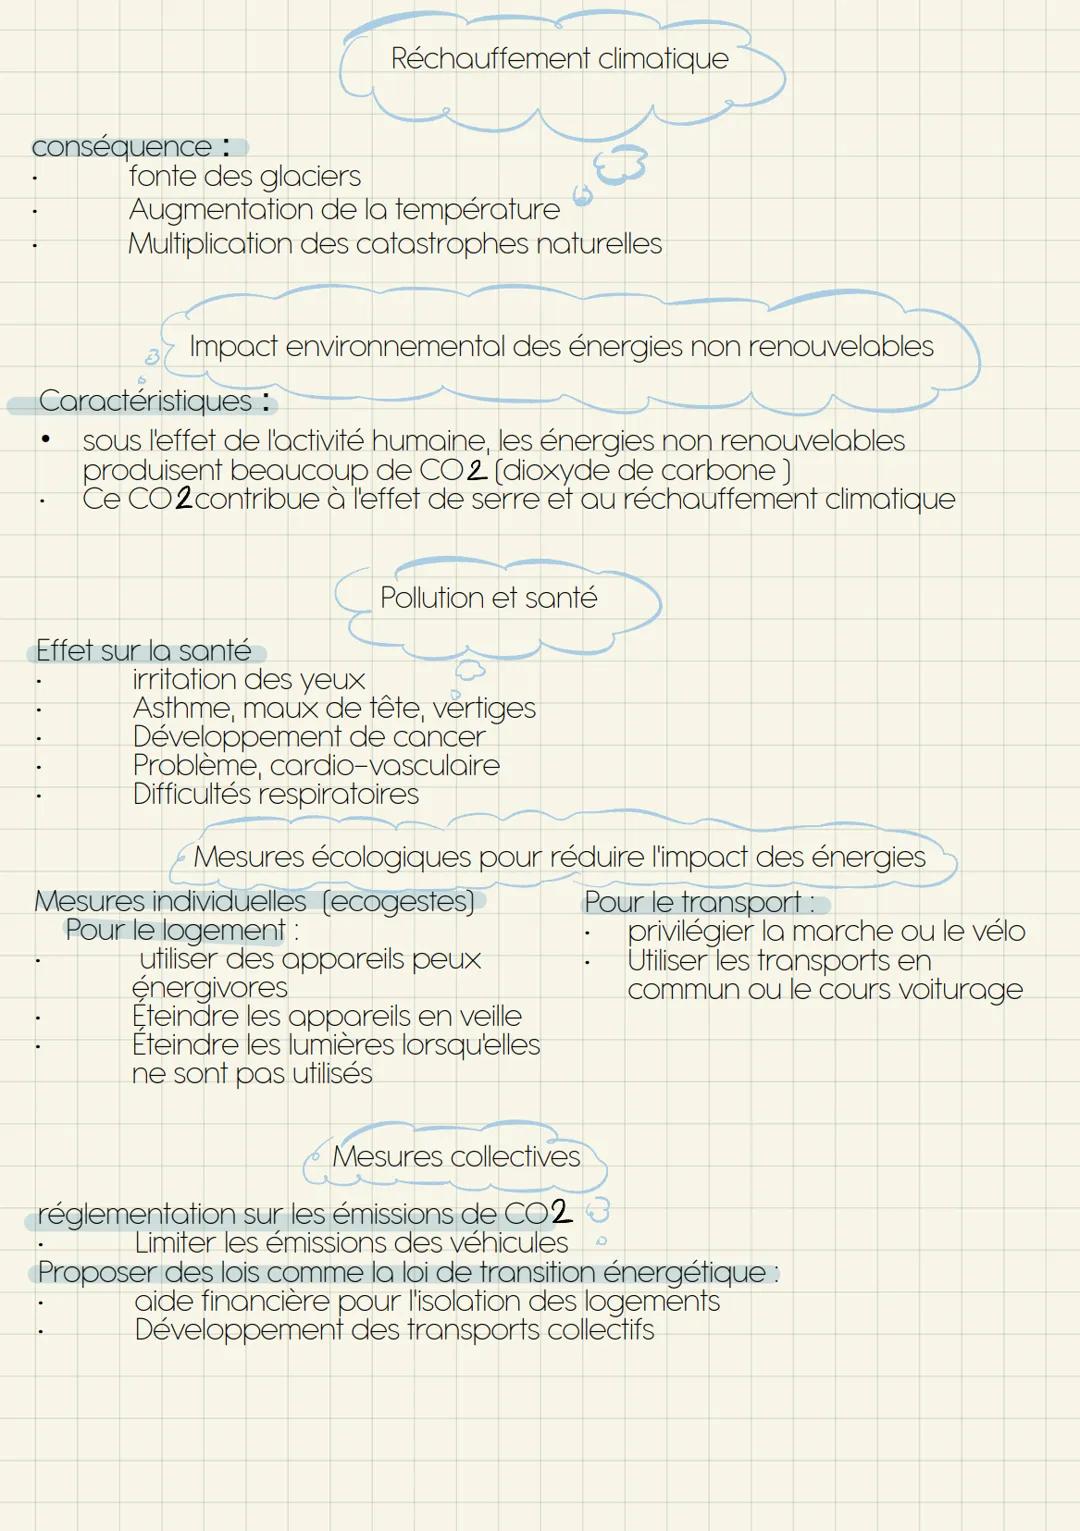 Réchauffement climatique
conséquence :
· fonte des glaciers
· Augmentation de la température
· Multiplication des catastrophes naturelles
Impact environnemental des énergies non renouvelables
Caractéristiques :
• sous l'effet de l'activité humaine, les énergies non renouvelables
produisent beaucoup de CO2 (dioxyde de carbone )
· Ce CO2 contribue à l'effet de serre et au réchauffement climatique
Pollution et santé
Effet sur la santé
· irritation des yeux
· Asthme, maux de tête, vertiges
· Développement de cancer
· Problème, cardio-vasculaire
· Difficultés respiratoires
Mesures écologiques pour réduire l'impact des énergies
Mesures individuelles (ecogestes)
Pour le logement :
· utiliser des appareils peux
énergivores
· Éteindre les appareils en veille
· Éteindre les lumières lorsqu'elles
ne sont pas utilisés
Pour le transport :
· privilégier la marche ou le vélo
· Utiliser les transports en
commun ou le cours voiturage
Mesures collectives
réglementation sur les émissions de CO2
· Limiter les émissions des véhicules
Proposer des lois comme la loi de transition énergétique :
· aide financière pour l'isolation des logements
· Développement des transports collectifs